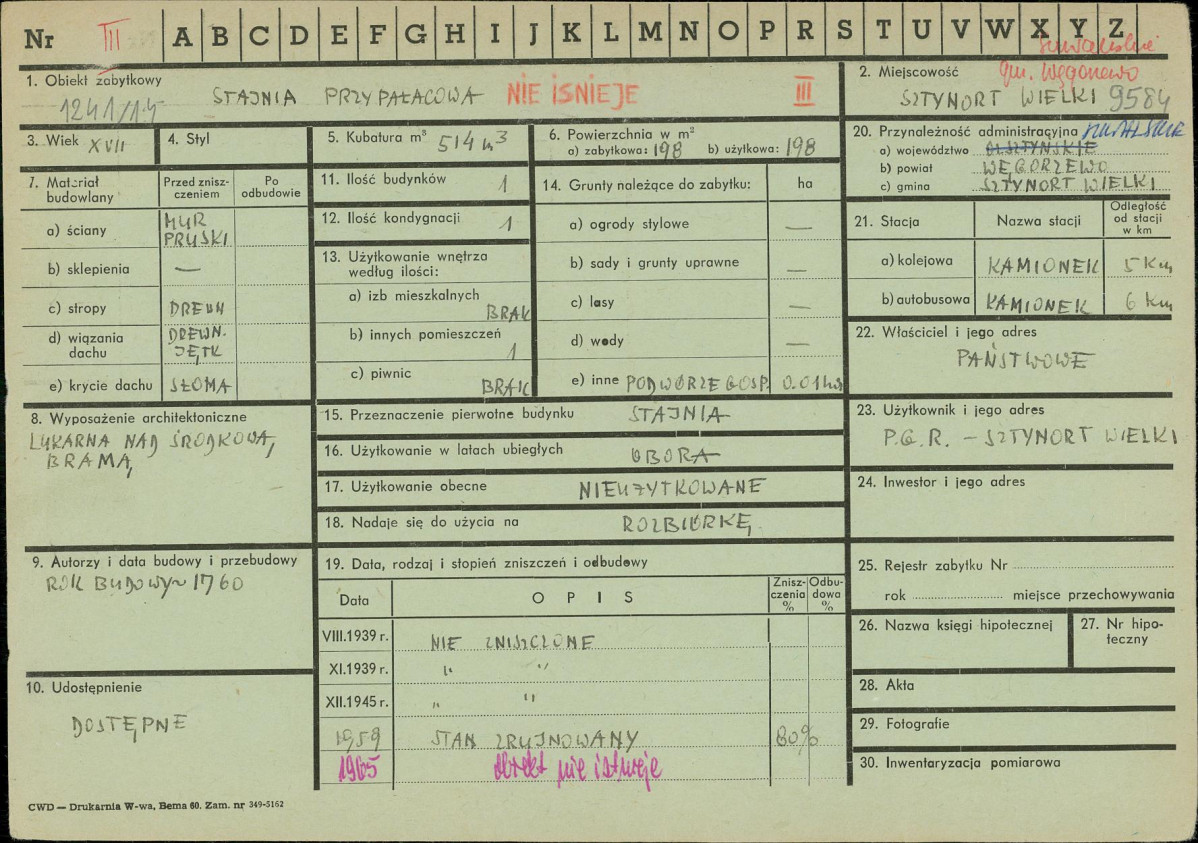 Nr III A B C D E F G H I J K L M N O P R S T U V W X Y Z
suwalskie
1. Obiekt zabytkowy
1241/14 STAJNIA PRZYPAŁACOWA NIE ISNIEJE III
2. Miejscowość gm. Węgorzewo
SZTYNORT WIELKI 9584
3. Wiek XVII
4. Styl
5. Kubatura m³ 514 m³
6. Powierzchnia w m²
a) zabytkowa: 198 b) użytkowa: 198
20. Przynależność administracyjna SUWALSKIE
a) województwo OLSZTYŃSKIE
b) powiat WĘGORZEWO
c) gmina SZTYNORT WIELKI
7. Materiał budowlany
Przed zniszczeniem
Po odbudowie
a) ściany MUR PRUSKI
b) sklepienia —
c) stropy DREWN
d) wiązania dachu DREWN. JĘTK
e) krycie dachu SŁOMA
11. Ilość budynków 1
12. Ilość kondygnacji 1
13. Użytkowanie wnętrza
według ilości:
a) izb mieszkalnych
BRAK
b) innych pomieszczeń
1
c) piwnic BRAK
14. Grunty należące do zabytku: ha
a) ogrody stylowe —
b) sady i grunty uprawne —
c) lasy —
d) wody —
e) inne PODWÓRZE GOSP. 0.01 ha
21. Stacja Nazwa stacji Odległość od stacji w km
a) kolejowa KAMIONEK 5 Km
b) autobusowa KAMIONEK 6 km
22. Właściciel i jego adres
PAŃSTWOWE
8. Wyposażenie architektoniczne
LUKARNA NAD ŚRODKOWĄ
BRAMĄ
15. Przeznaczenie pierwotne budynku STAJNIA
16. Użytkowanie w latach ubiegłych OBORA
17. Użytkowanie obecne NIEUŻYTKOWANE
18. Nadaje się do użycia na ROZBIÓRKĘ
23. Użytkownik i jego adres
P.G.R. – SZTYNORT WIELKI
24. Inwestor i jego adres
9. Autorzy i data budowy i przebudowy
ROK BUDOWY ~ 1760
10. Udostępnienie
DOSTĘPNE
19. Data, rodzaj i stopień zniszczeń i odbudowy
Data OPIS Zniszczenia % Odbudowa %
VIII.1939 r. NIE ZNISZCZONE
XI.1939 r. " "
XII.1945 r. " "
1959 STAN ZRUJNOWANY 80%
1965 obiekt nie istnieje
25. Rejestr zabytku Nr
rok miejsce przechowywania
26. Nazwa księgi hipotecznej
27. Nr hipoteczny
28. Akta
29. Fotografie
30. Inwentaryzacja pomiarowa
CWD — Drukarnia W-wa, Bema 60. Zam. nr 349-5162